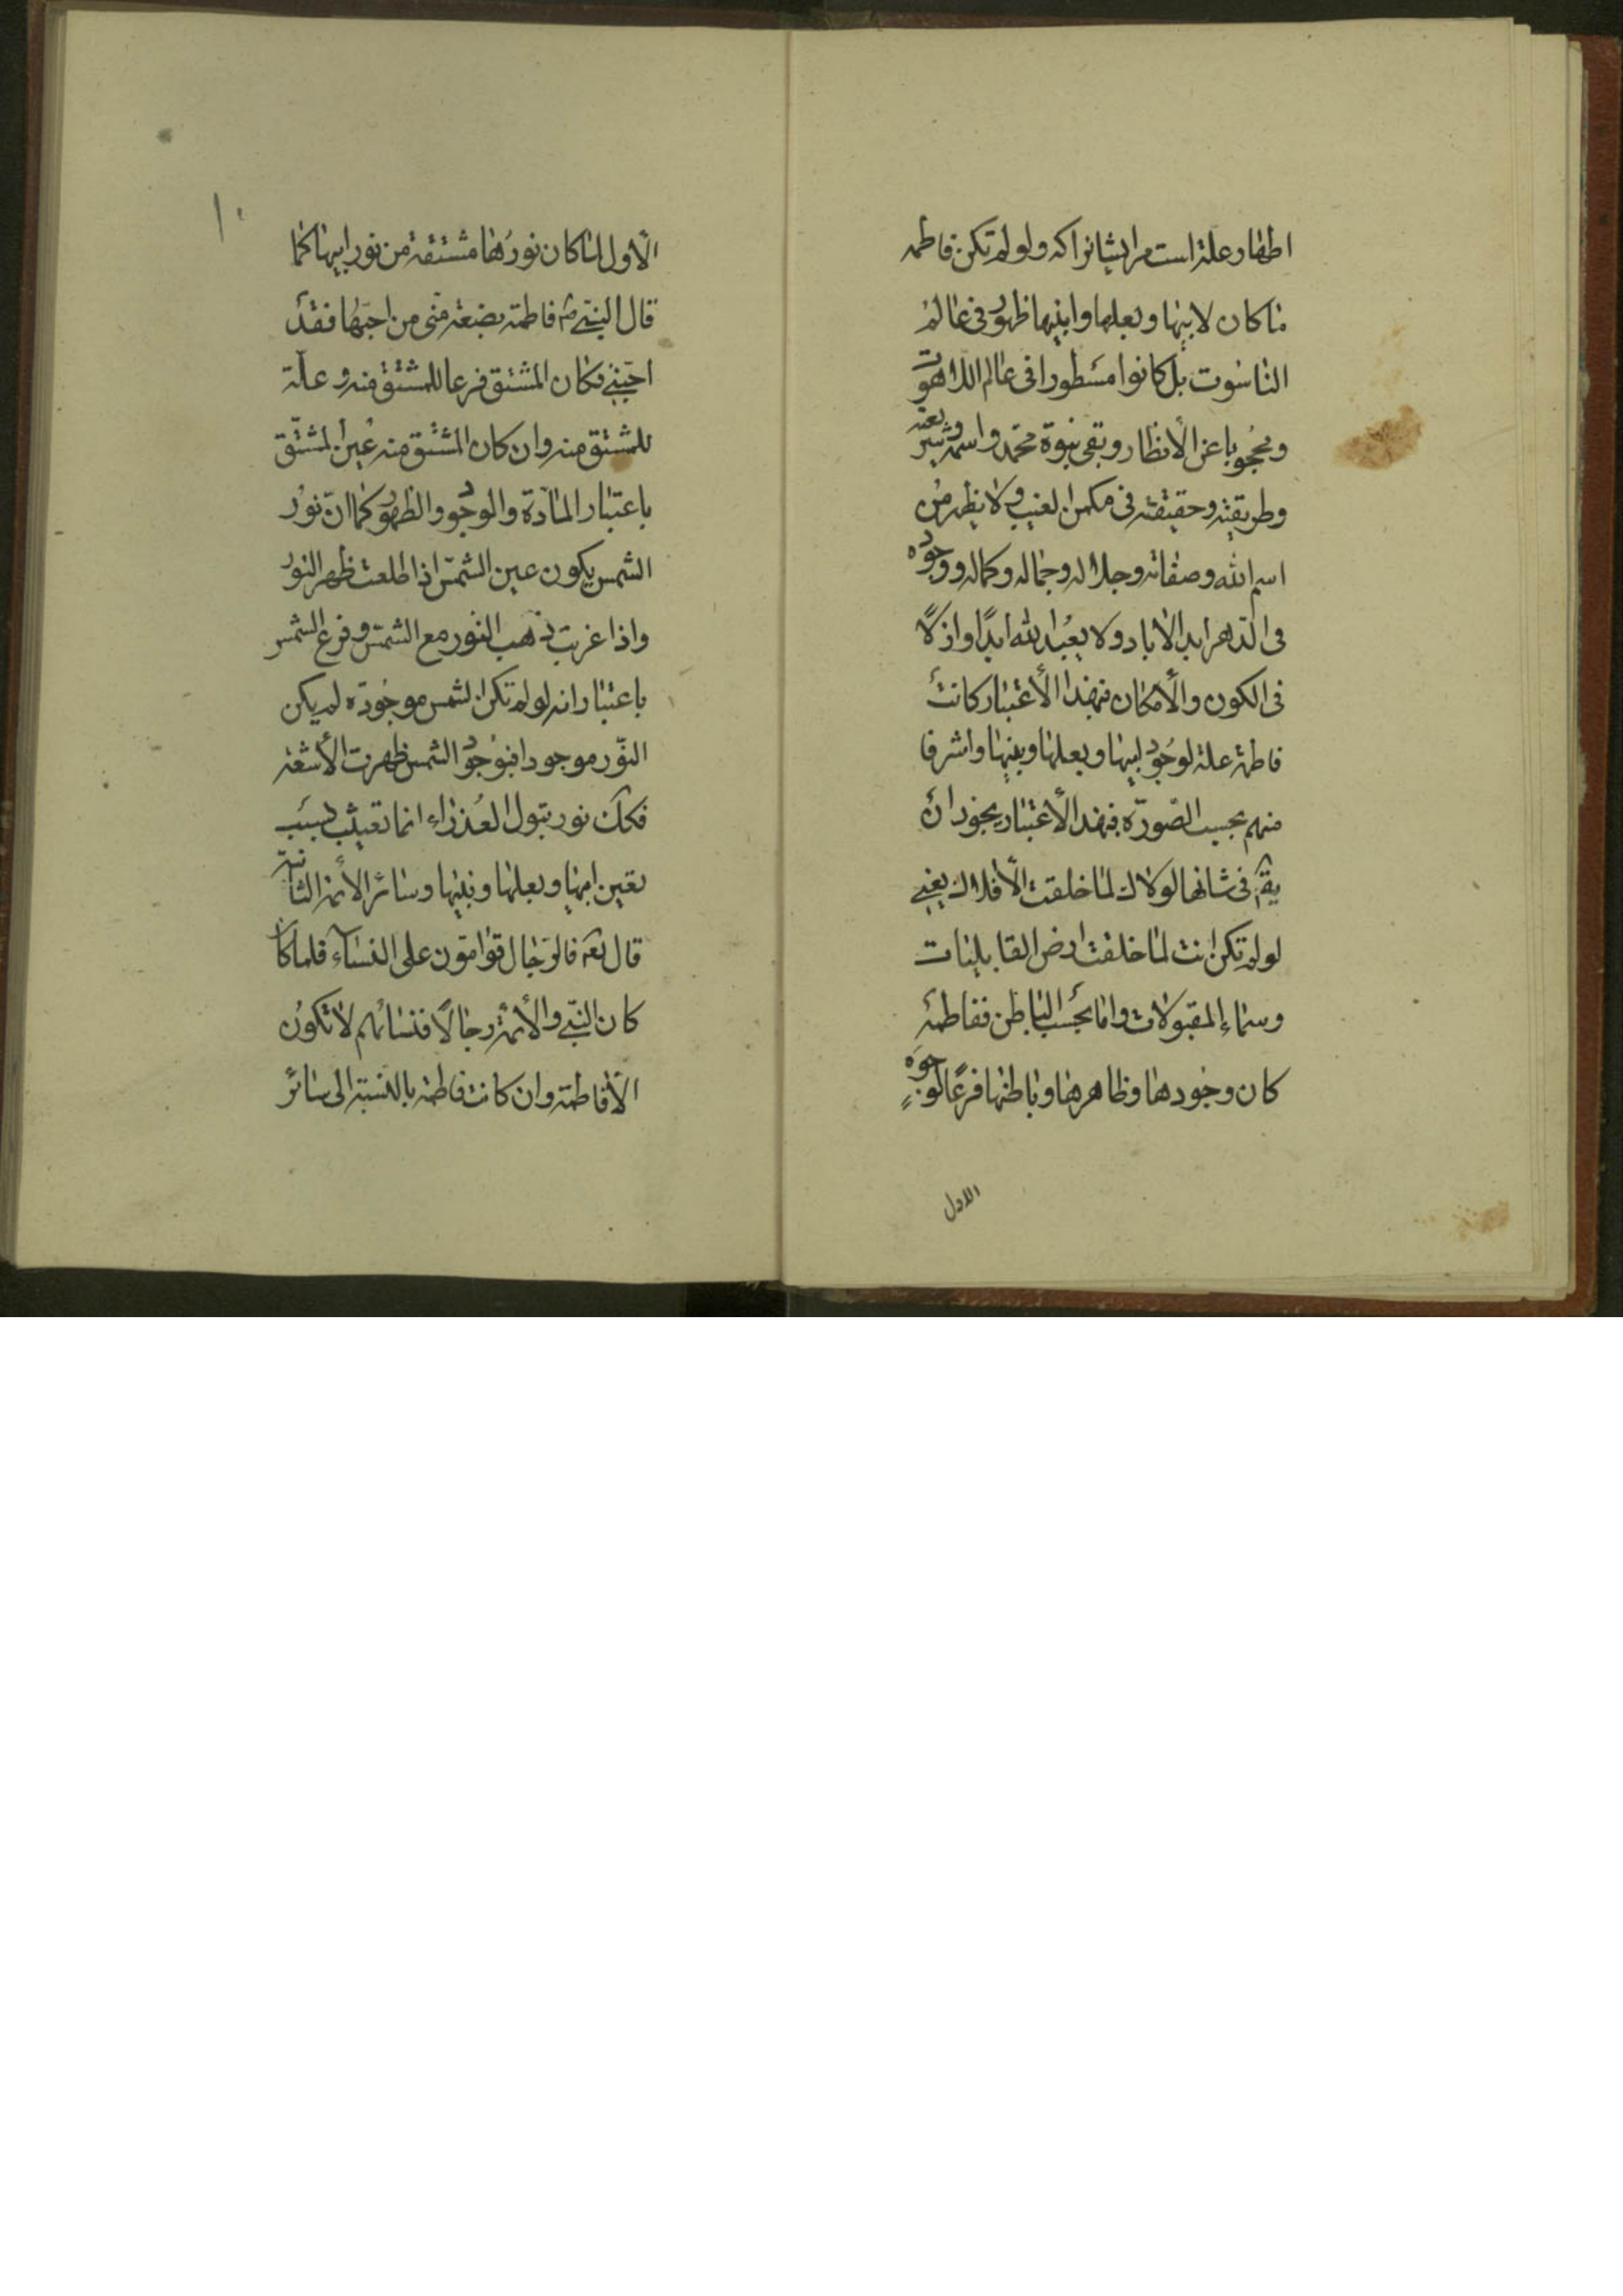 اطهار علة است مر ایشانرا که ولو لم تکن فاطمه
ما کان لابیها و بعلها وابنیها ظهور فی عالم
الناسوت بل کانوا مسطورا فی عالم اللاهوت
ومحجوبا عن الأنظار وبقی نبوة محمد واسمه وشریعته
وطریقته وحقیقته فی مکمن الغیب ولا یظهر من
اسم الله وصفاته وجلاله وجماله وکماله ووجوده
فی الدهر ابد الاباد ولا یعبد الله ابدًا واذلًا
فی الکون والأمکان فبهذا الأعتبار کانت
فاطمة علة لوجود ابیها وبعلها وبنیها واشرفا
منهم بحسب الصّورة فبهذا الأعتبار یجوز ان
یقم فی شانها لولاك لما خلقت الأفلاك یعنی
لو لم تکن انت لما خلقت ارض القابلیات
وسماء المقبولات واما بحسب الباطن ففاطمة
کان وجودها وظاهرها وباطنها فرعًا لوجوه
الاول
١٠
الأول لما کان نورها مشتقة من نور ابیها کما
قال النبیّ ص فاطمة بضعة منّی من احبّها فقد
احبّنی فکان المشتق فرعا للمشتق منه وعلّة
للمشتق منه وان کان المشتق منه عین المشتّق
باعتبار المادّة والوجود والظهور کما انّ نور
الشمس یکون عین الشمس اذا طلعت ظهر النور
واذا غربت ذهب النور مع الشمس وفرع الشمس
باعتبار انه لو لم تکن الشمس موجودة لم یکن
النّور موجودا فبوجود الشمس ظهرت الأشعة
فکك نور بتول العذراء انما تعینت بسبب
تعین ابیها وبعلها وبنیها وسائر الأئمة الثانیة
قال تعه فالرّجال قوّامّون علی النساء فلما کان
کان النبیّ والأئمة رجالًا فنسائهم لا تکون
الّا فاطمة وان کانت فاطمة بالنسبة الی سائر